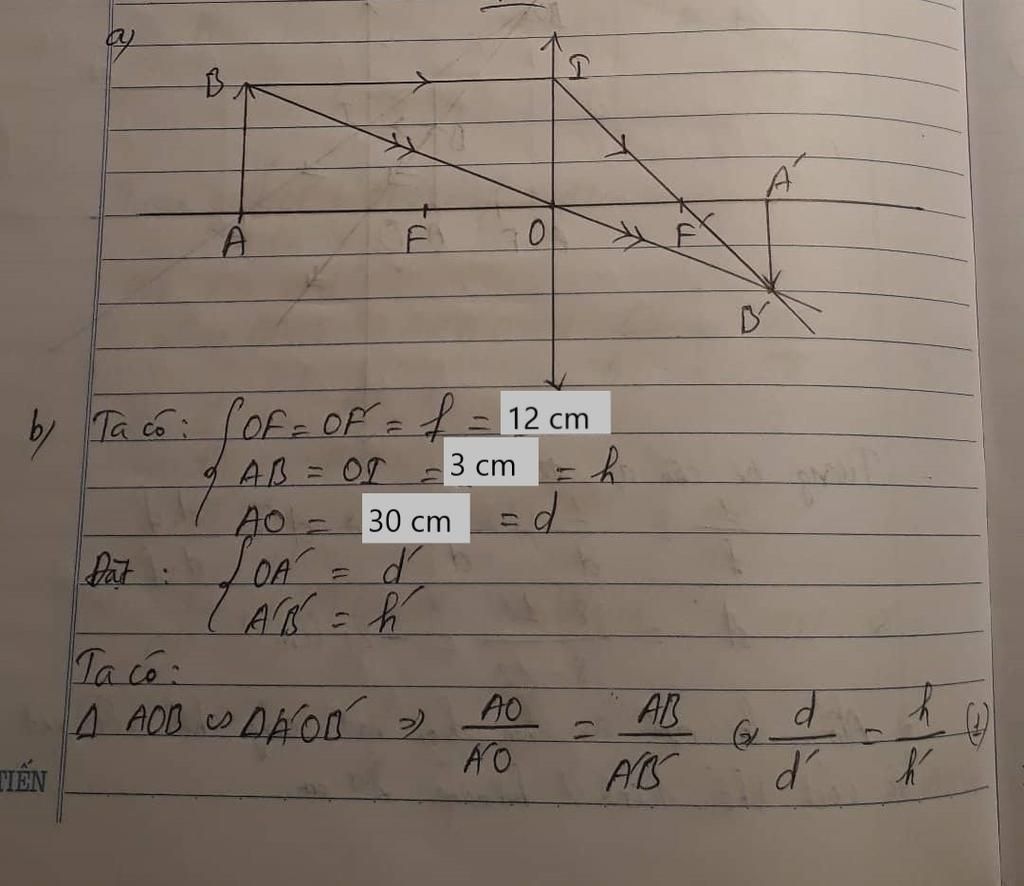 a)
B I
A'
A F O F'
B'
b) Ta có: { OF = OF' = f = 12 cm
AB = OI = 3 cm = h
AO = 30 cm = d
Đặt : { OA' = d'
A'B' = h'
Ta có:
Δ AOB ∽ ΔA'OB' => AO/A'O = AB/A'B' <=> d/d' = h/h' (1)
TIẾN